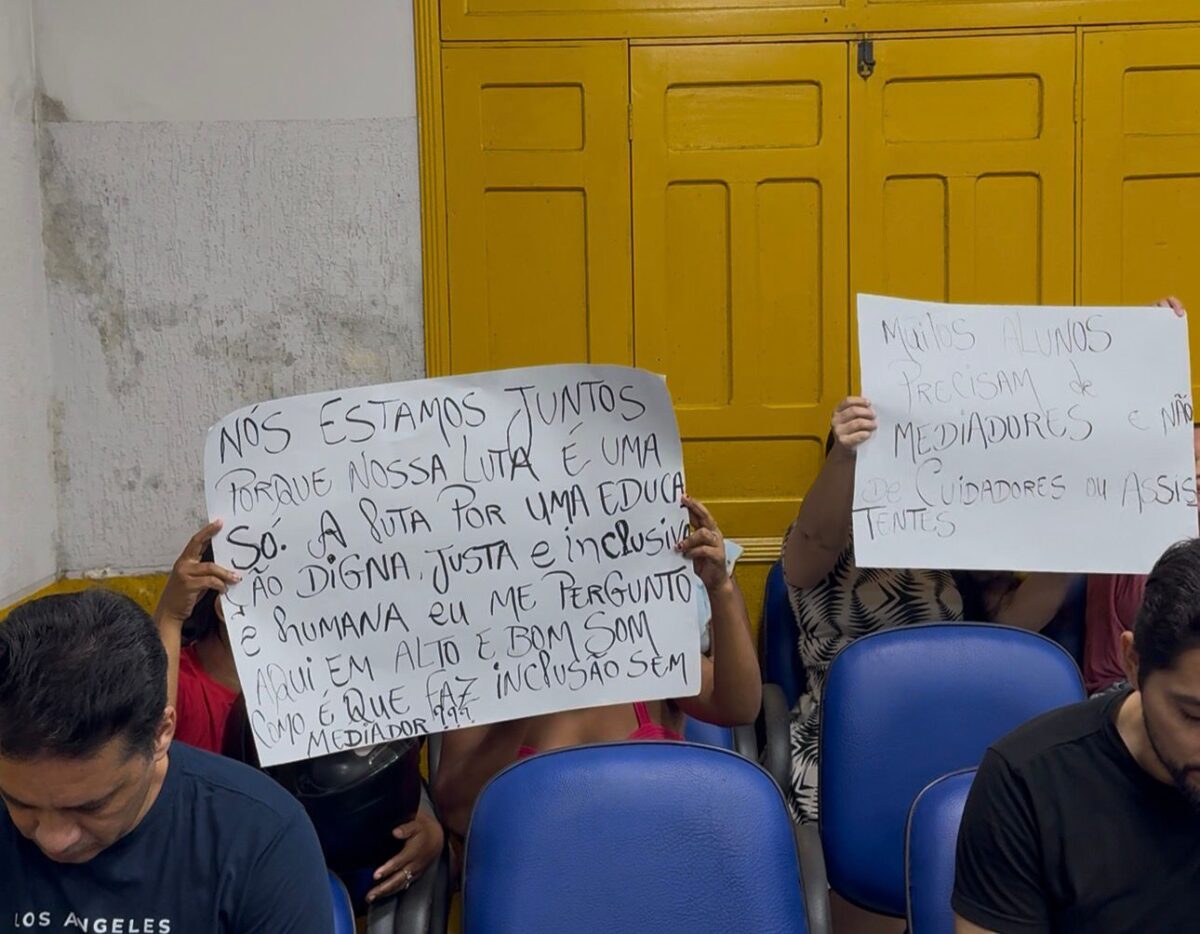 NÓS ESTAMOS JUNTOS
PORQUE NOSSA LUTA É UMA
SÓ. A LUTA POR UMA EDUCA
ÇÃO DIGNA, JUSTA e inclusiva
E HUMANA EU ME PERGUNTO
AQUI EM ALTO E BOM SOM
COMO É QUE FAZ INCLUSÃO SEM
MEDIADOR???
MUITOS ALUNOS
PRECISAM de
MEDIADORES e NÃO
DE CUIDADORES OU ASSIS
TENTES
LOS ANGELES